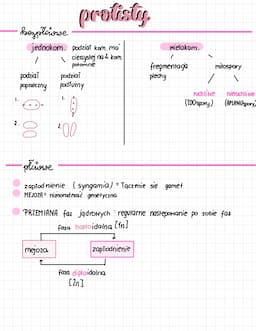 protisty
bezpłciowe
jednokom. podział kom. ma/
cierzystej na 2 kom.
potomne
podział poprzeczny
podział podłużny
1.
2.
1.
2.
wielokom.
fragmentacja plechy
mitospory
ruchliwe (zoospory)
nieruchliwe (aplanospory)
płciowe
zapłodnienie (syngamia) = łączenie się gamet
MEJOZA = różnorodność genetyczna
PRZEMIANA faz jądrowych : regularne następowanie po sobie faz
faza haploidalna [1n]
mejoza
zapłodnienie
faza diploidalna
[2n]